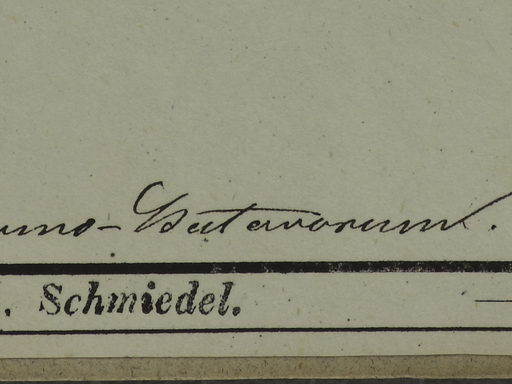 uno-Batavorum.
. Schmiedel.